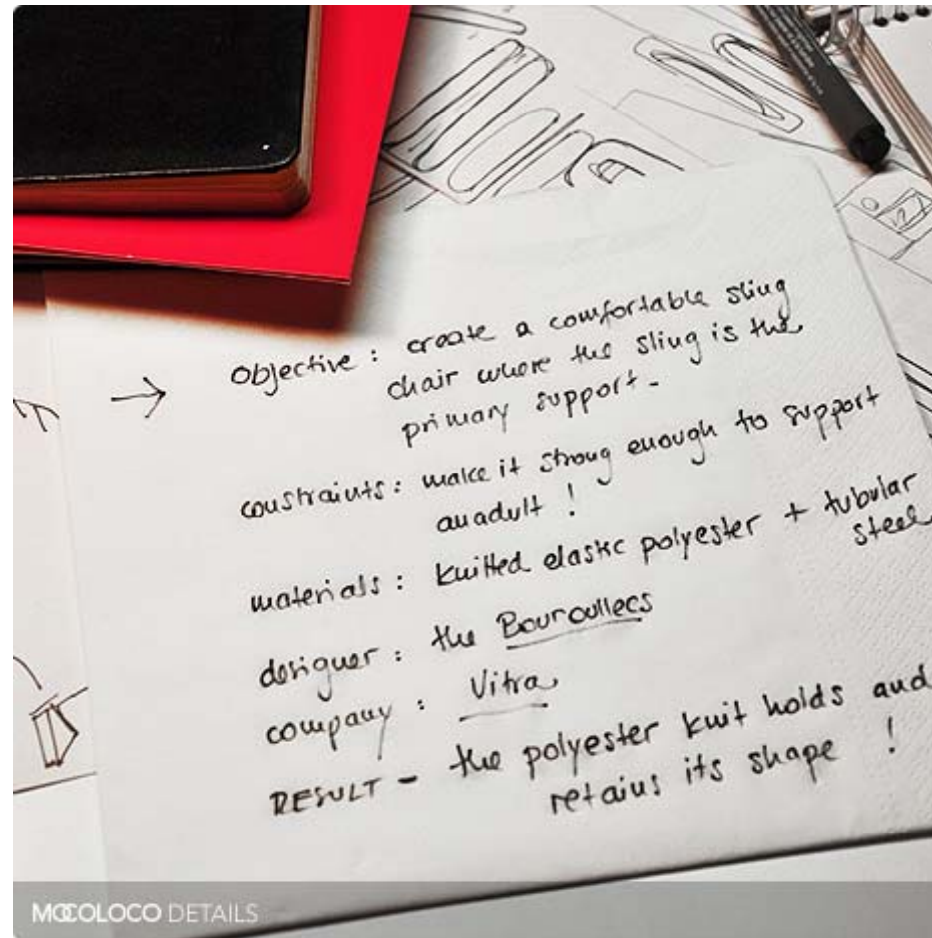 → Objective : create a comfortable sling
chair where the sling is the
primary support -
constraints : make it strong enough to support
an adult !
materials : knitted elastic polyester + tubular
steel
designer : the Bouroullecs
company : Vitra
RESULT - the polyester knit holds and
retains its shape !
MOCOLOCO DETAILS